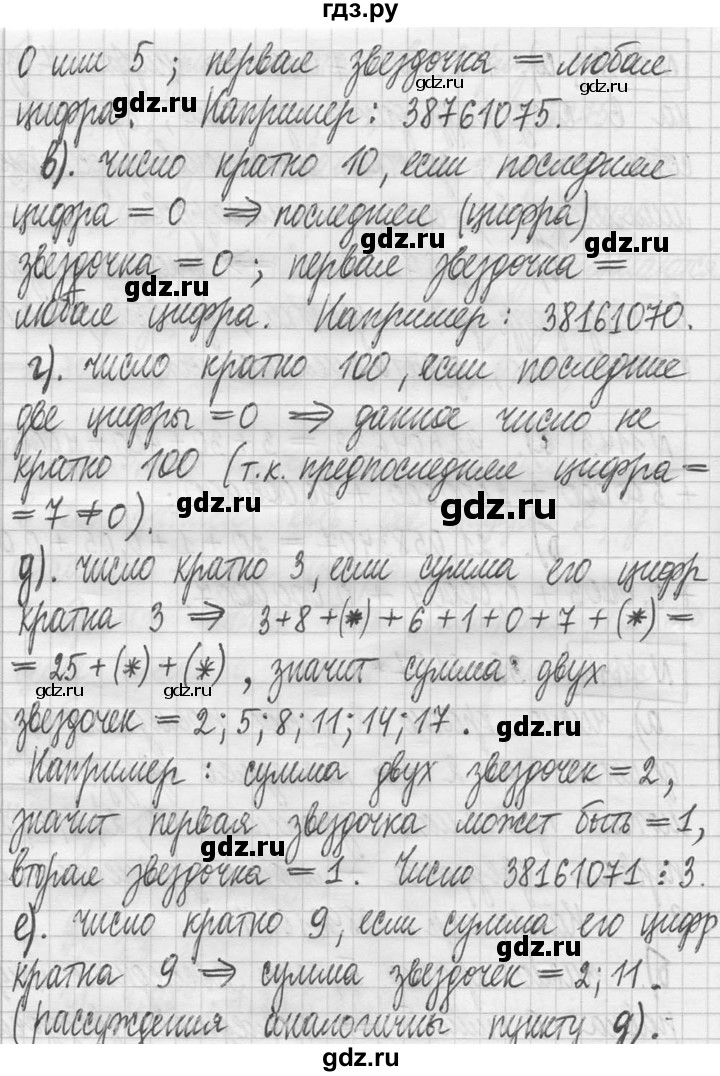 гдз.ру
0 или 5; первая звездочка = любая
gdz.ru gdz.ru
цифра. Например: 38761075.
gdz.ru
в). число кратно 10, если последняя
цифра = 0 ⇒ последняя (цифра)
gdz.ru gdz.ru
звездочка = 0; первая звездочка =
gdz.ru
любая цифра. Например: 38161070.
г). число кратно 100, если последние
gdz.ru gdz.ru
две цифры = 0 ⇒ данное число не
кратно 100 (т.к. предпоследняя цифра =
= 7 ≠ 0).
gdz.ru gdz.ru
д). число кратно 3, если сумма его цифр
кратна 3 ⇒ 3+8+(*)+6+1+0+7+(*) =
gdz.ru gdz.ru
= 25+(*)+(*), значит сумма двух
gdz.ru gdz.ru
звездочек = 2; 5; 8; 11; 14; 17.
gdz.ru
Например: сумма двух звездочек = 2,
значит первая звездочка может быть = 1,
gdz.ru
вторая звездочка = 1. Число 38161071 ⋮ 3.
е). число кратно 9, если сумма его цифр
gdz.ru
кратна 9 ⇒ сумма звездочек = 2; 11.
gdz.ru gdz.ru
(рассуждения аналогичны пункту д).
gdz.ru